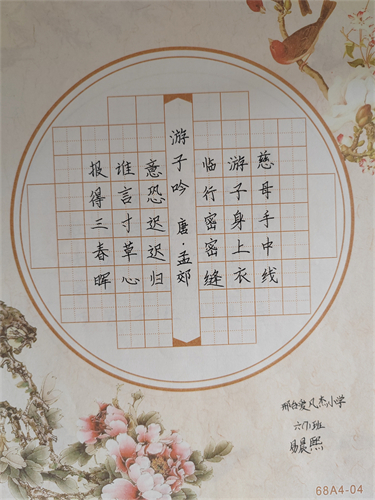 慈母手中线
游子身上衣
临行密密缝
游子吟 唐·孟郊
意恐迟迟归
谁言寸草心
报得三春晖
邢台爱凡杰小学
六(1)班
易晨熙
68A4-04